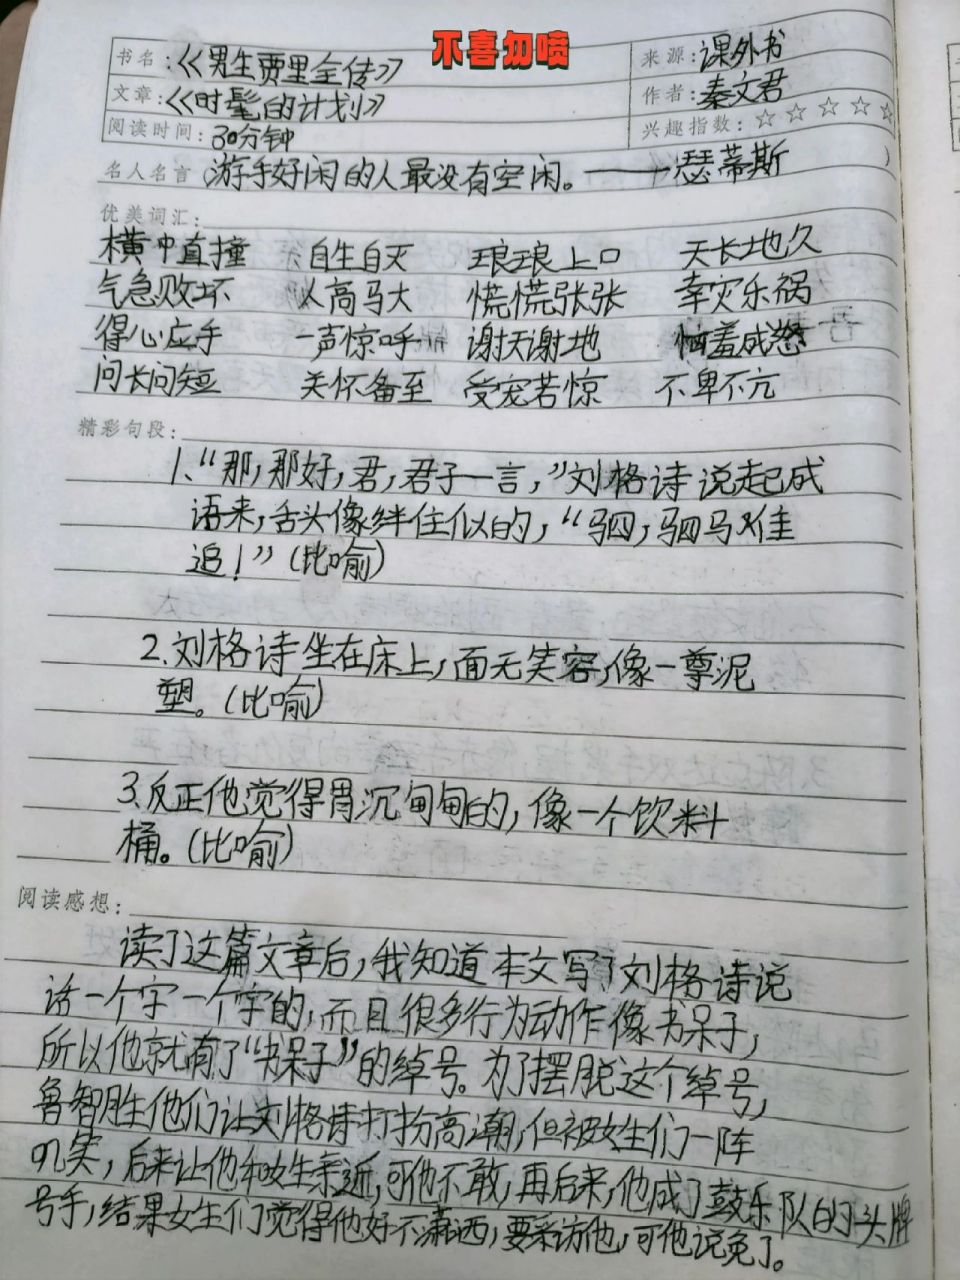 不喜勿喷
书名：《男生贾里全传》 来源：课外书
文章：《时髦的计划》 作者：秦文君
阅读时间：30分钟 兴趣指数：☆☆☆☆☆
名人名言 游手好闲的人最没有空闲。——瑟蒂斯
优美词汇：
横冲直撞 自生自灭 琅琅上口 天长地久
气急败坏 人高马大 慌慌张张 幸灾乐祸
得心应手 一声惊呼 谢天谢地 恼羞成怒
问长问短 关怀备至 受宠若惊 不卑不亢
精彩句段：
1、“那，那好，君，君子一言，”刘格诗说起成
语来，舌头像绊住似的，“驷，驷马难
追！”（比喻）
2、刘格诗坐在床上，面无笑容，像一尊泥
塑。（比喻）
3、反正他觉得胃沉甸甸的，像一个饮料
桶。（比喻）
阅读感想：
读了这篇文章后，我知道本文写了刘格诗说
话一个字一个字的，而且很多行为动作像书呆子，
所以他就有了“书呆子”的绰号。为了摆脱这个绰号，
鲁智胜他们让刘格诗打扮高潮，但被女生们一阵
叽笑，后来让他和女生亲近，可他不敢，再后来，他成了鼓乐队的头牌
号手，结果女生们觉得他好不潇洒，要采访他，可他说免了。